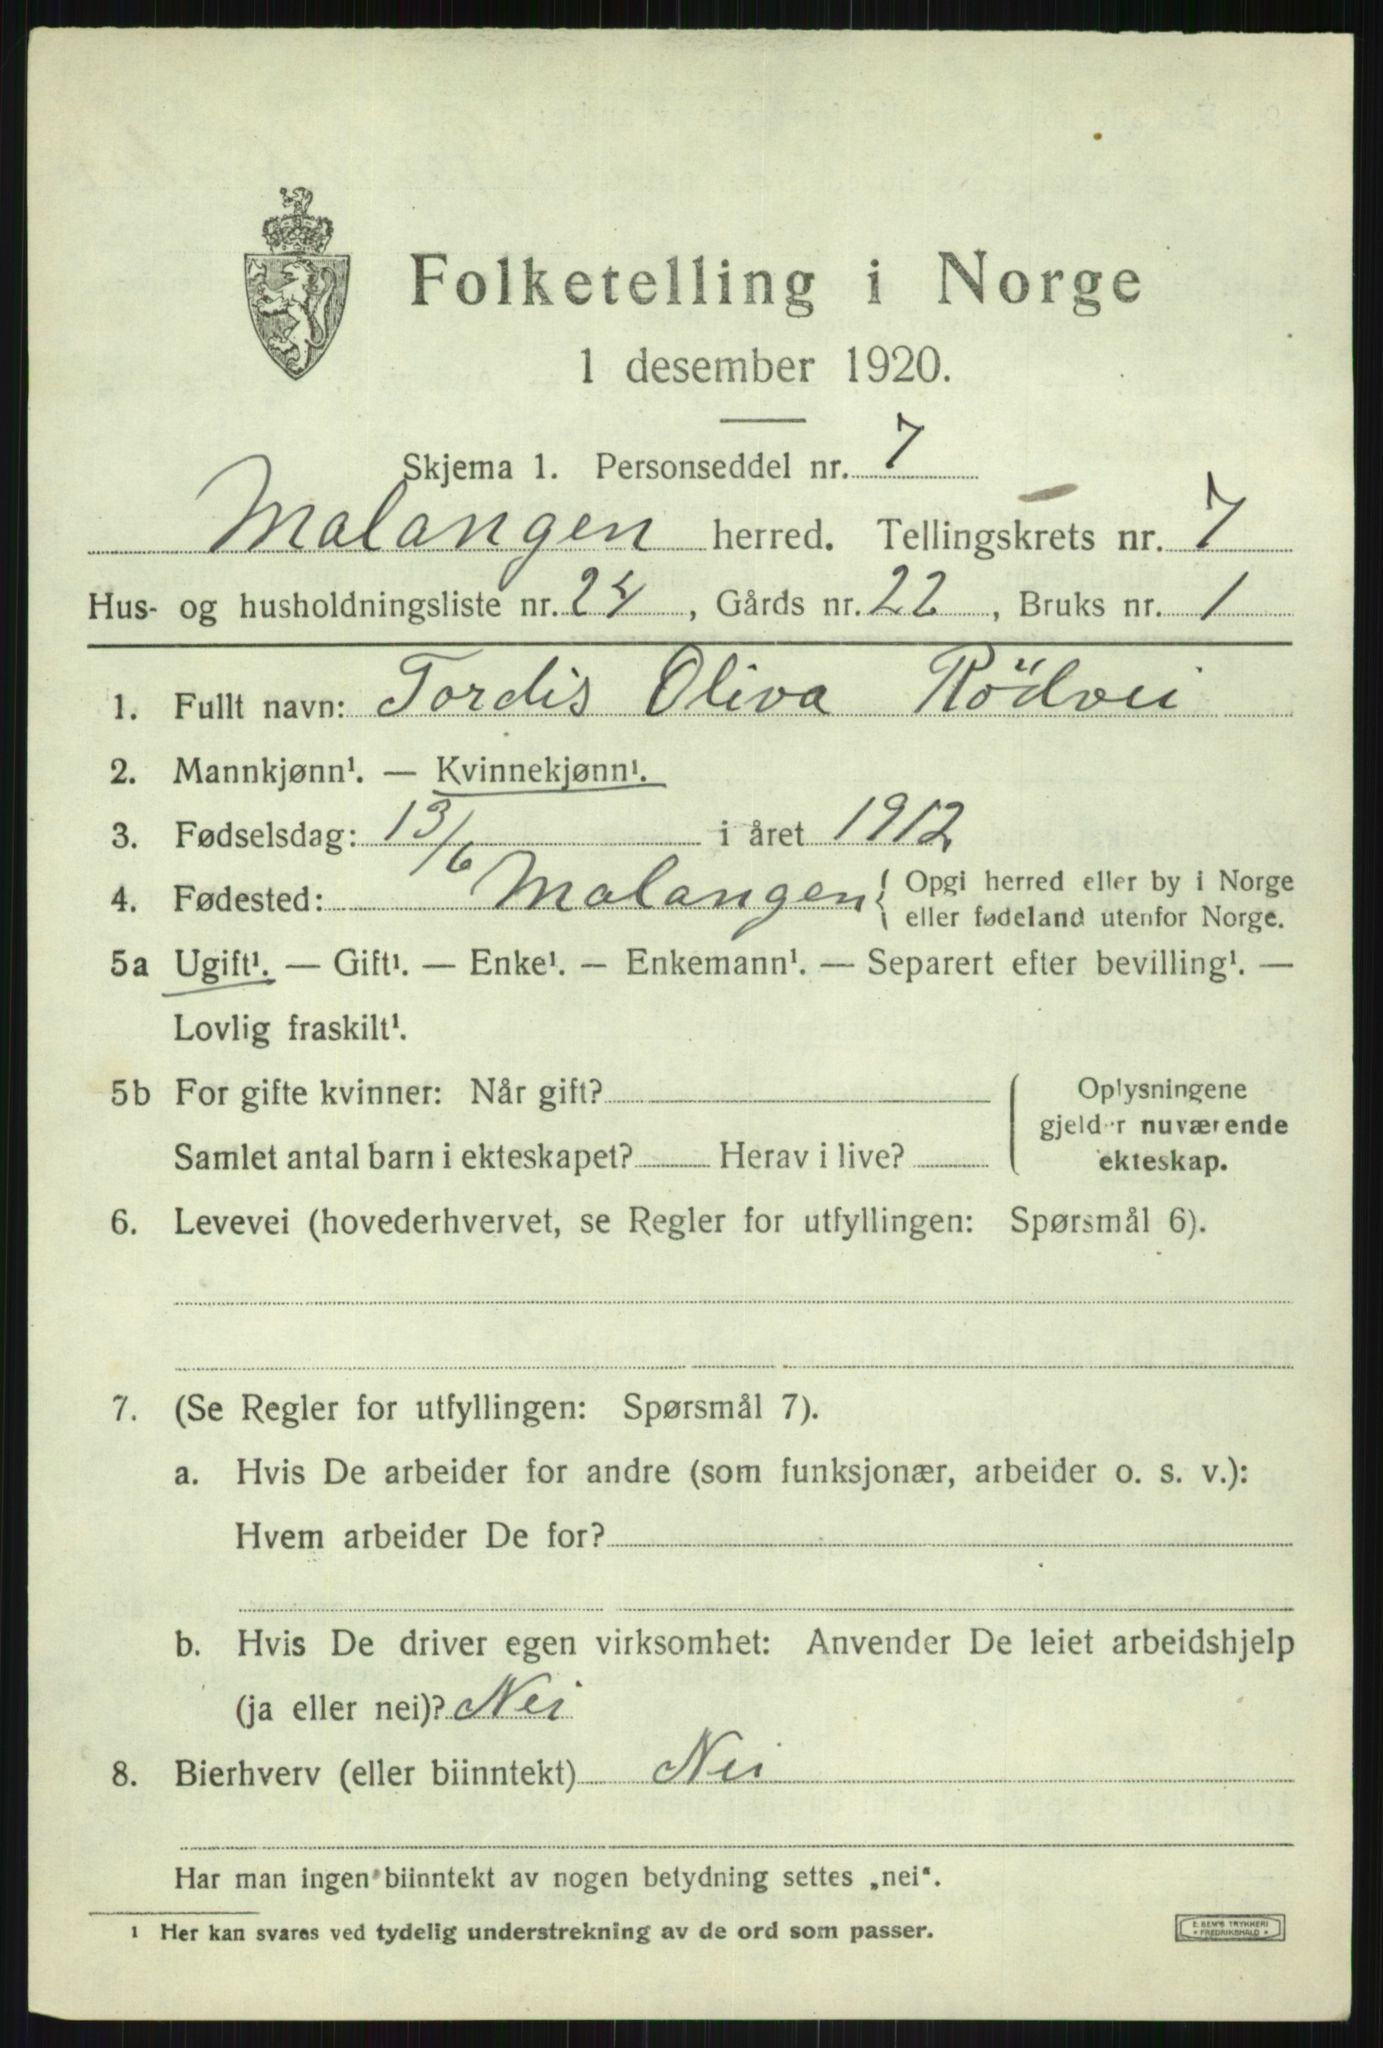 Folketelling i Norge
1 desember 1920.
Skjema 1. Personseddel nr. 7
Malangen herred. Tellingskrets nr. 7
Hus- og husholdningsliste nr. , Gårds nr. 22, Bruks nr. 1
1. Fullt navn: Tordis Oliva Rödvei
2. Mannkjønn¹. — Kvinnekjønn¹.
3. Fødselsdag: 13/6 i året 1912
4. Fødested: Malangen { Opgi herred eller by i Norge
eller fødeland utenfor Norge.
5a Ugift¹. — Gift¹. — Enke¹. — Enkemann¹. — Separert efter bevilling¹. —
Lovlig fraskilt¹.
5b For gifte kvinner: Når gift?
Samlet antal barn i ekteskapet? Herav i live?
Oplysningene
gjelder nuværende
ekteskap.
6. Levevei (hovederhvervet, se Regler for utfyllingen: Spørsmål 6).
7. (Se Regler for utfyllingen: Spørsmål 7).
a. Hvis De arbeider for andre (som funksjonær, arbeider o. s. v.):
Hvem arbeider De for?
b. Hvis De driver egen virksomhet: Anvender De leiet arbeidshjelp
(ja eller nei)? Nei
8. Bierhverv (eller biinntekt) Nei
Har man ingen biinntekt av nogen betydning settes „nei“.
¹ Her kan svares ved tydelig understrekning av de ord som passer.
E. SEM'S TRYKKERI
* FREDRIKSHALD *